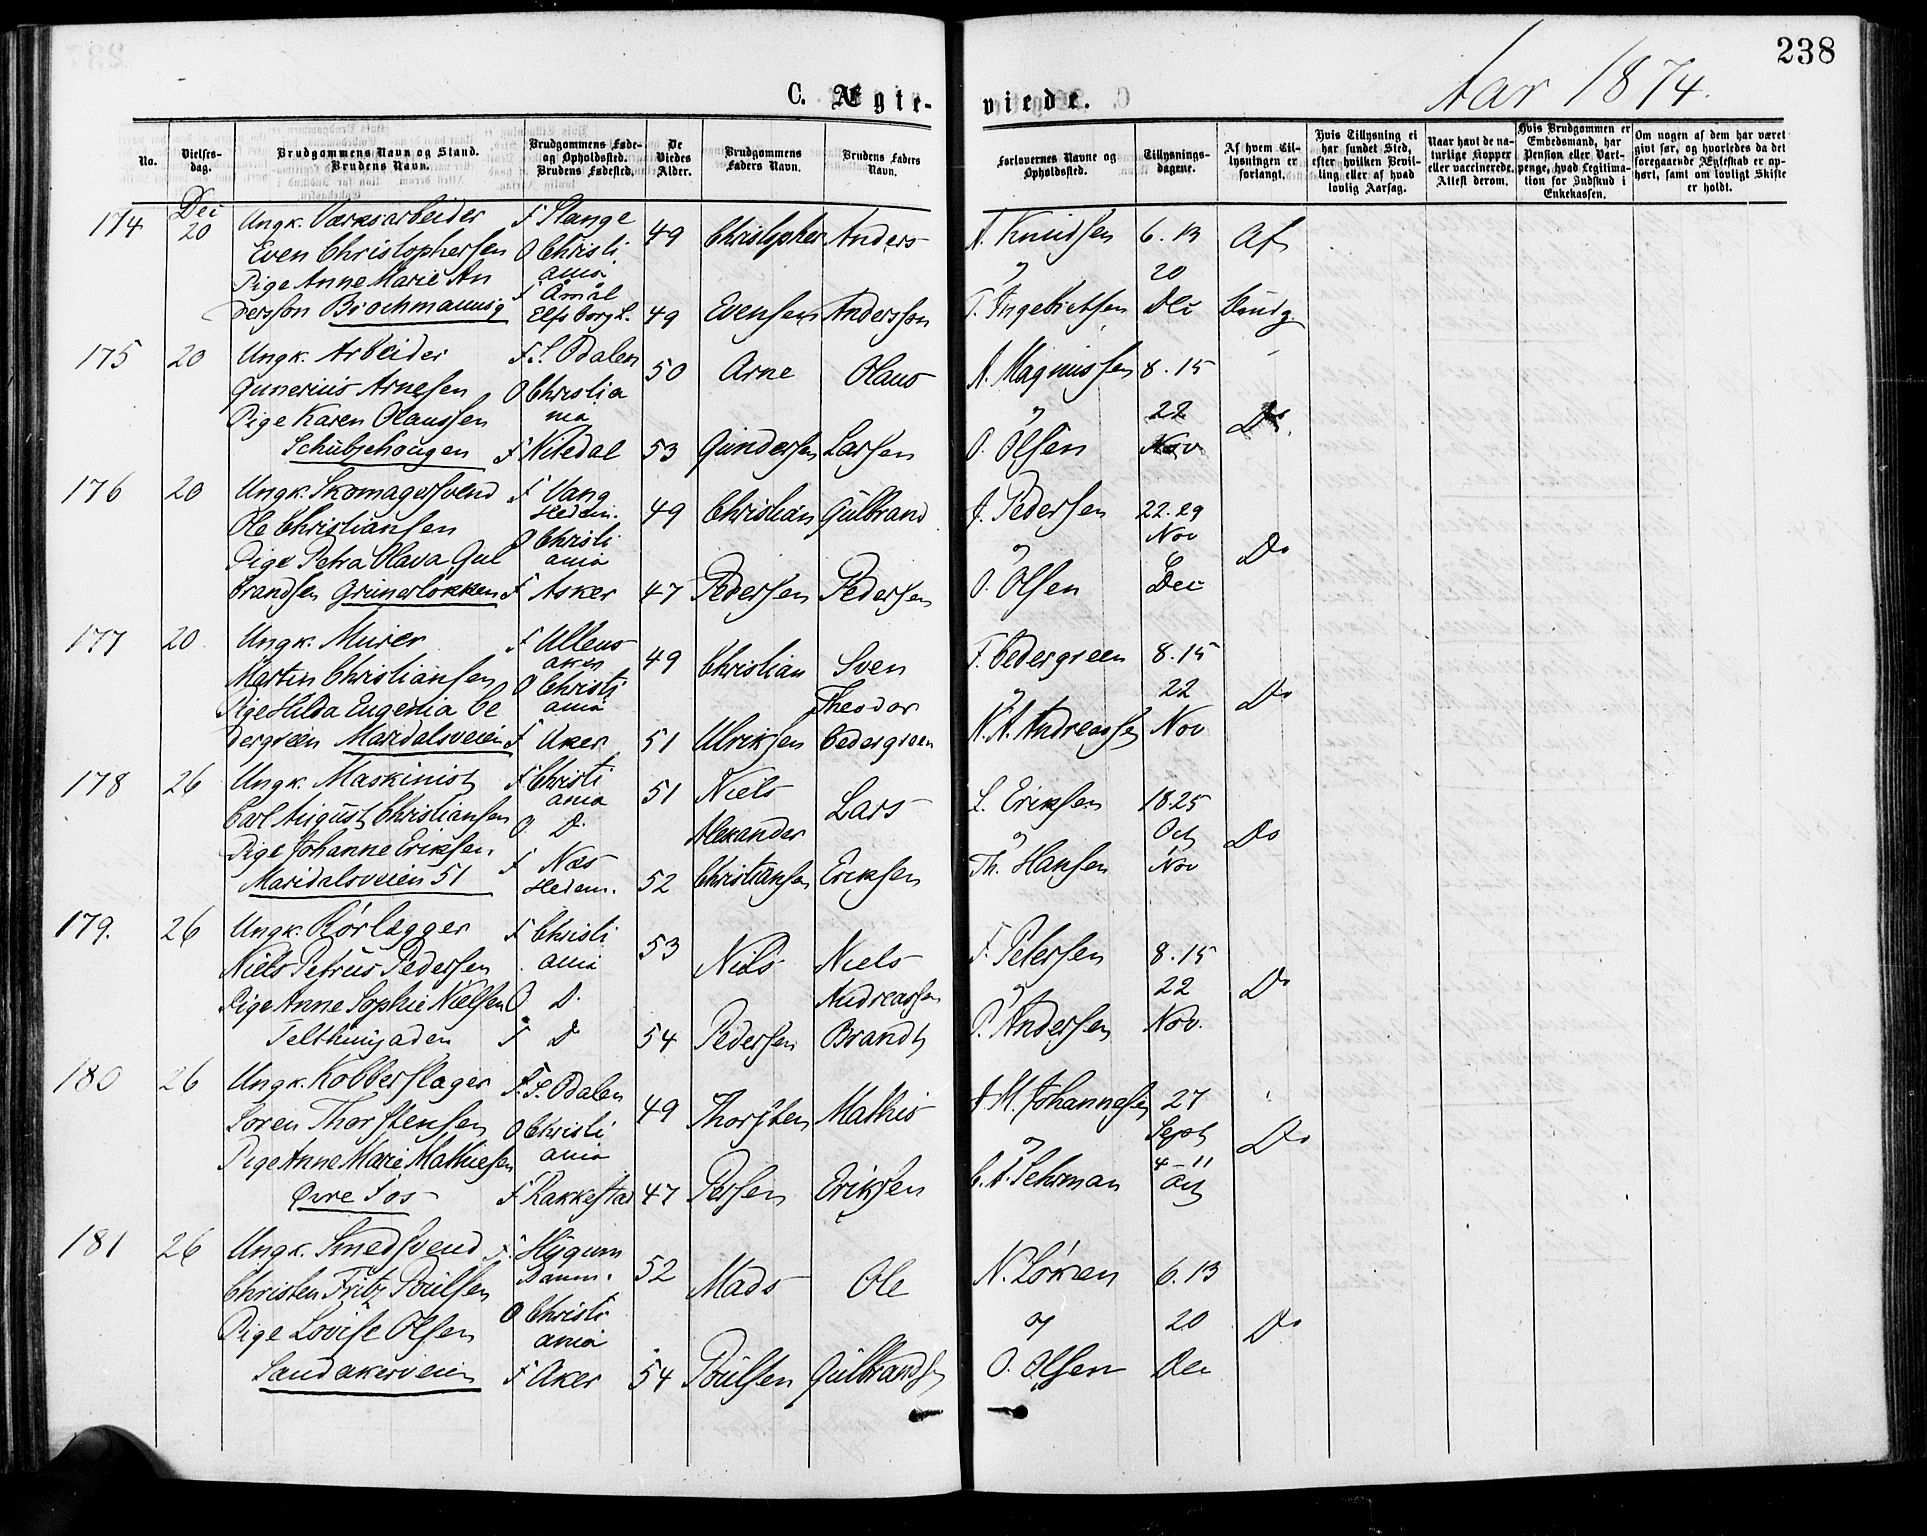 238
Aar 1874.
C. Ægte-
viede.
No.
Vielses-
dag.
Brudgommens Navn og Stand.
Brudens Navn.
Brudgommens Føde-
og Opholdssted.
Brudens Fødested.
De
Viedes
Alder.
Brudgommens
Faders Navn.
Brudens Faders
Navn.
Forlovernes Navne og
Opholdssted.
Tillysnings-
dagene.
Af hvem Til-
lysningen er
forlangt.
Hvis Tillysning ei
har fundet Sted,
efter hvilken Bevil-
ling eller af hvad
lovlig Aarsag.
Naar havt de na-
turlige Kopper
eller vaccinerede.
Attest derom.
Hvis Brudgommen er
Embedsmand, har
Pension eller Vart-
penge, hvad Legitima-
tion for Indskud i
Enkekassen.
Om nogen af dem har været
givt før, og hvorledes da det
foregaaende Ægteskab er op-
hørt, samt om lovligt Skifte
er holdt.
174 Dec 20 Ungk. Værksarbeider F Stange 49 Christopher Anders A. Knudsen 6. 13 Af
Even Christophersen O Christi
Pige Anne Marie An ania og 20
F Åmål
dersson Brochmannsg Elfsborg L. 49 Evensen Andersson T. Ingebretsen Dec
175 20 Ungk. Arbeider F. S. Odalen 50 Arne Olaus A. Magnussen 8. 15
Gunerius Arnesen O Christia
Pige Karen Olaussen nia og 22 Do.
Schübjehougen F Nitedal 53 Gundersen Larsen O. Olsen Nov
176 20 Ungk. Skomagersvend F Vang 49 Christian Gulbrand J. Pedersen 22. 29
Hedem.
Ole Christiansen O Christi Nov
Pige Petra Olava Gul ania og 6 Do
brandsen Grünerløkken F Asker 47 Pedersen Pedersen O. Olsen Dec
177 20. Ungk. Murer F Ullens 49 Christian Sven F. Cedergreen 8. 15
aker
Martin Christiansen O Christi 22
Pige Hilda Eugenia Ce ania Theodor og Do
dergreen Maridalsveien F Aker 51 Ulriksen Cedergreen N. A. Andreassen Nov
178 26 Ungk. Maskinist F Christi 51 Niels Lars L. Eriksen 18. 25
ania
Carl August Christiansen O D. Alexander Oct
Pige Johanne Eriksen F Næs og 1 Do
Maridalsveien 51 Hedem. 52 Christiansen Eriksen Th. Hansen Nov
179. 26 Ungk. Rørlægger F Christi 53 Nils Niels F. Petersen 8. 15
Niels Petrus Pedersen ania
Pige Anne Sophie Nielsen O D. Andreassen og 22 Do
Telthusgaden F D 54 Pedersen Brandt P. Andersen Nov.
180 26 Ungk. Kobberslager F. S. Odalen 49 Thorsten Mathis A. M. Johannesen 27
Soren Thorstensen O Christi Sept
Pige Anne Marie Mathiesen ania og 4 - 11 Do
Øvre Fos F Rakkestad 47 Persen Eriksen C. A. Sehrman Oct
181 26 Ungk. Smedsvend F. Hygum 52 Mads Ole N. Løken 6. 13
Danm.
Christen Fritz Poülsen O Christi
Pige Lovise Olsen ania og 20 Do
Sandakerveien F Aker 54 Poülsen Gülbrandsen O. Olsen Dec